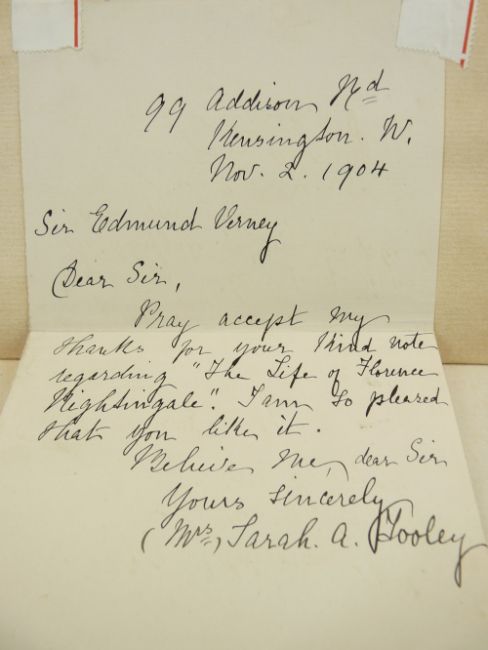 99 Addison Rd
Kensington. W.
Nov. 2. 1904
Sir Edmund Verney
Dear Sir,
Pray accept my
thanks for your kind note
regarding "The Life of Florence
Nightingale". I am so pleased
that you like it.
Believe me, dear Sir
Yours sincerely
(Mrs) Sarah. A. Tooley